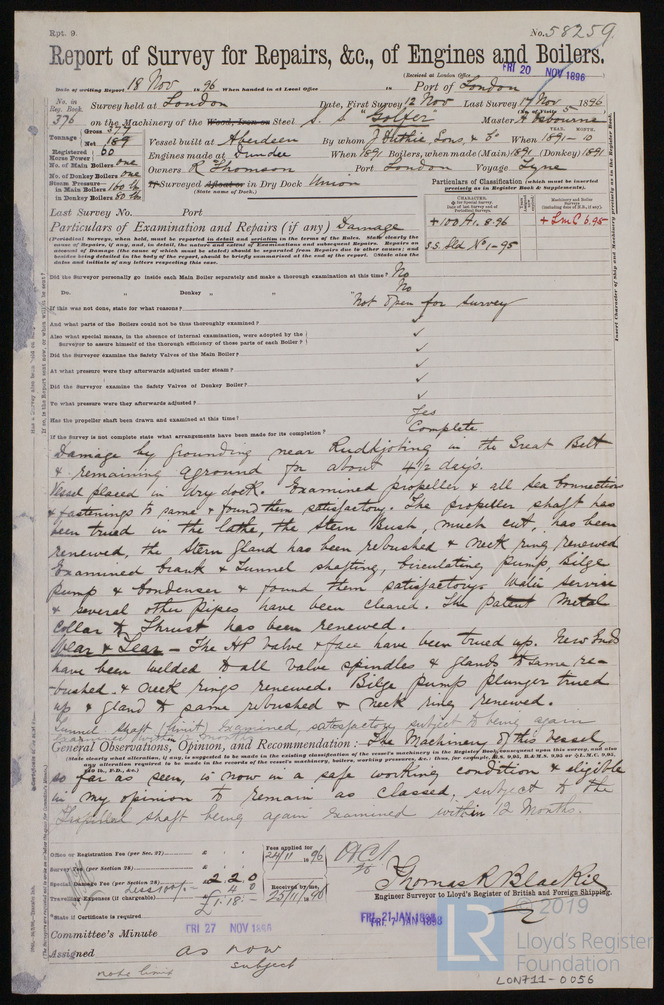 Rpt. 9.
No. 58259
Report of Survey for Repairs, &c., of Engines and Boilers.
(Received at London Office FRI 20 NOV 1896
Date of writing Report 18 Nov 1896 When handed in at Local Office 18 Port of London
No. in Reg. Book. 376
Survey held at London Date, First Survey 12 Nov Last Survey 17 Nov 1896
on the Machinery of the Wood, Iron or Steel S. S. "Golfer" Master A Osbourne
Tonnage Gross Net 189
Vessel built at Aberdeen By whom J Duthie, Sons, & Co When 1891-10
Registered Horse Power 60
Engines made at Dundee When 1891 Boilers, when made (Main) 1891 (Donkey) 1891
No. of Main Boilers one
Owners R Thomson Port London Voyage Tyne
No. of Donkey Boilers one
Steam Pressure in Main Boilers 160 lb
in Donkey Boilers 80 lb
If Surveyed Afloat or in Dry Dock Union
(State name of Dock.)
Particulars of Classification (which must be inserted precisely as in Register Book & Supplements).
Last Survey No. Port
CHARACTER.
Machinery and Boiler Surveys
+100A1. 8.96
+LMC 6.95
S.S. Lda No 1-95
Particulars of Examination and Repairs (if any) Damage
(Periodical Surveys, when held, must be reported in detail and seriatim in the terms of the Rules. State clearly the
cause of Repairs, if any, and, in detail, the nature and extent of Examinations and subsequent Repairs. Repairs on
account of Damage (the cause of which must be stated) should be separated from Repairs due to other causes; and
besides being detailed in the body of the report, should be briefly summarised at the end of the report. State also the
dates and initials of any letters respecting this case.
Did the Surveyor personally go inside each Main Boiler separately and make a thorough examination at this time? No
Do. Donkey " " " " No
If this was not done, state for what reasons? Not open for survey
And what parts of the Boilers could not be thus thoroughly examined?
Also what special means, in the absence of internal examination, were adopted by the
Surveyor to assure himself of the thorough efficiency of those parts of each Boiler?
Did the Surveyor examine the Safety Valves of the Main Boiler?
At what pressure were they afterwards adjusted under steam?
Did the Surveyor examine the Safety Valves of Donkey Boiler?
To what pressure were they afterwards adjusted?
Has the propeller shaft been drawn and examined at this time? Yes
If the Survey is not complete state what arrangements have been made for its completion? Complete
Damage by grounding near Rudkjobing in the Great Belt
& remaining aground for about 4½ days.
Vessel placed in dry dock. Examined propeller & all sea connections
& fastenings to same & found them satisfactory. The propeller shaft has
been trued in the lathe, the Stern Bush, much cut, has been
renewed, the Stern Gland has been rebushed & neck ring renewed
Examined crank & tunnel shafting, circulating pump, Bilge
pump & condenser & found them satisfactory. Water service
& several other pipes have been cleared. The patent metal
collar to Thrust has been renewed.
Wear & Tear - The HP valve & face have been trued up. New Ends
have been welded to all valve spindles & glands to same re-
bushed & neck rings renewed. Bilge pump plunger trued
up & gland to same rebushed & neck ring renewed.
Tunnel shaft (limit) examined satisfactory subject to being again
examined within 12 months.
General Observations, Opinion, and Recommendation:- The Machinery of this Vessel
so far as seen, is now in a safe working condition & eligible
in my opinion to remain as classed, subject to the
Propeller shaft being again examined within 12 Months.
Office or Registration Fee (per Sec. 27) £
Survey Fee (per Section 28) £
Special Damage Fee (per Section 28) £2 2 0
Less 10% 4 0
Travelling Expenses (if chargeable) £
£1.18.-
Fees applied for 24/11 1896
Received by me, 25/11 1896
Thomas R Blackie
Engineer Surveyor to Lloyd's Register of British and Foreign Shipping.
*State if Certificate is required
FRI. 21 JAN 1898
FRI. 7 JAN 1898
Committee's Minute FRI 27 NOV 1896
Assigned as now
subject
note limit
LR
© 2019
Lloyd's Register
Foundation
LON711-0056